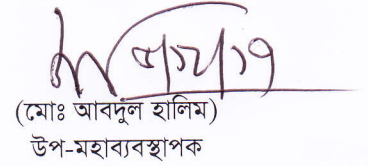 (মোঃ আবদুল হালিম)
উপ-মহাব্যবস্থাপক